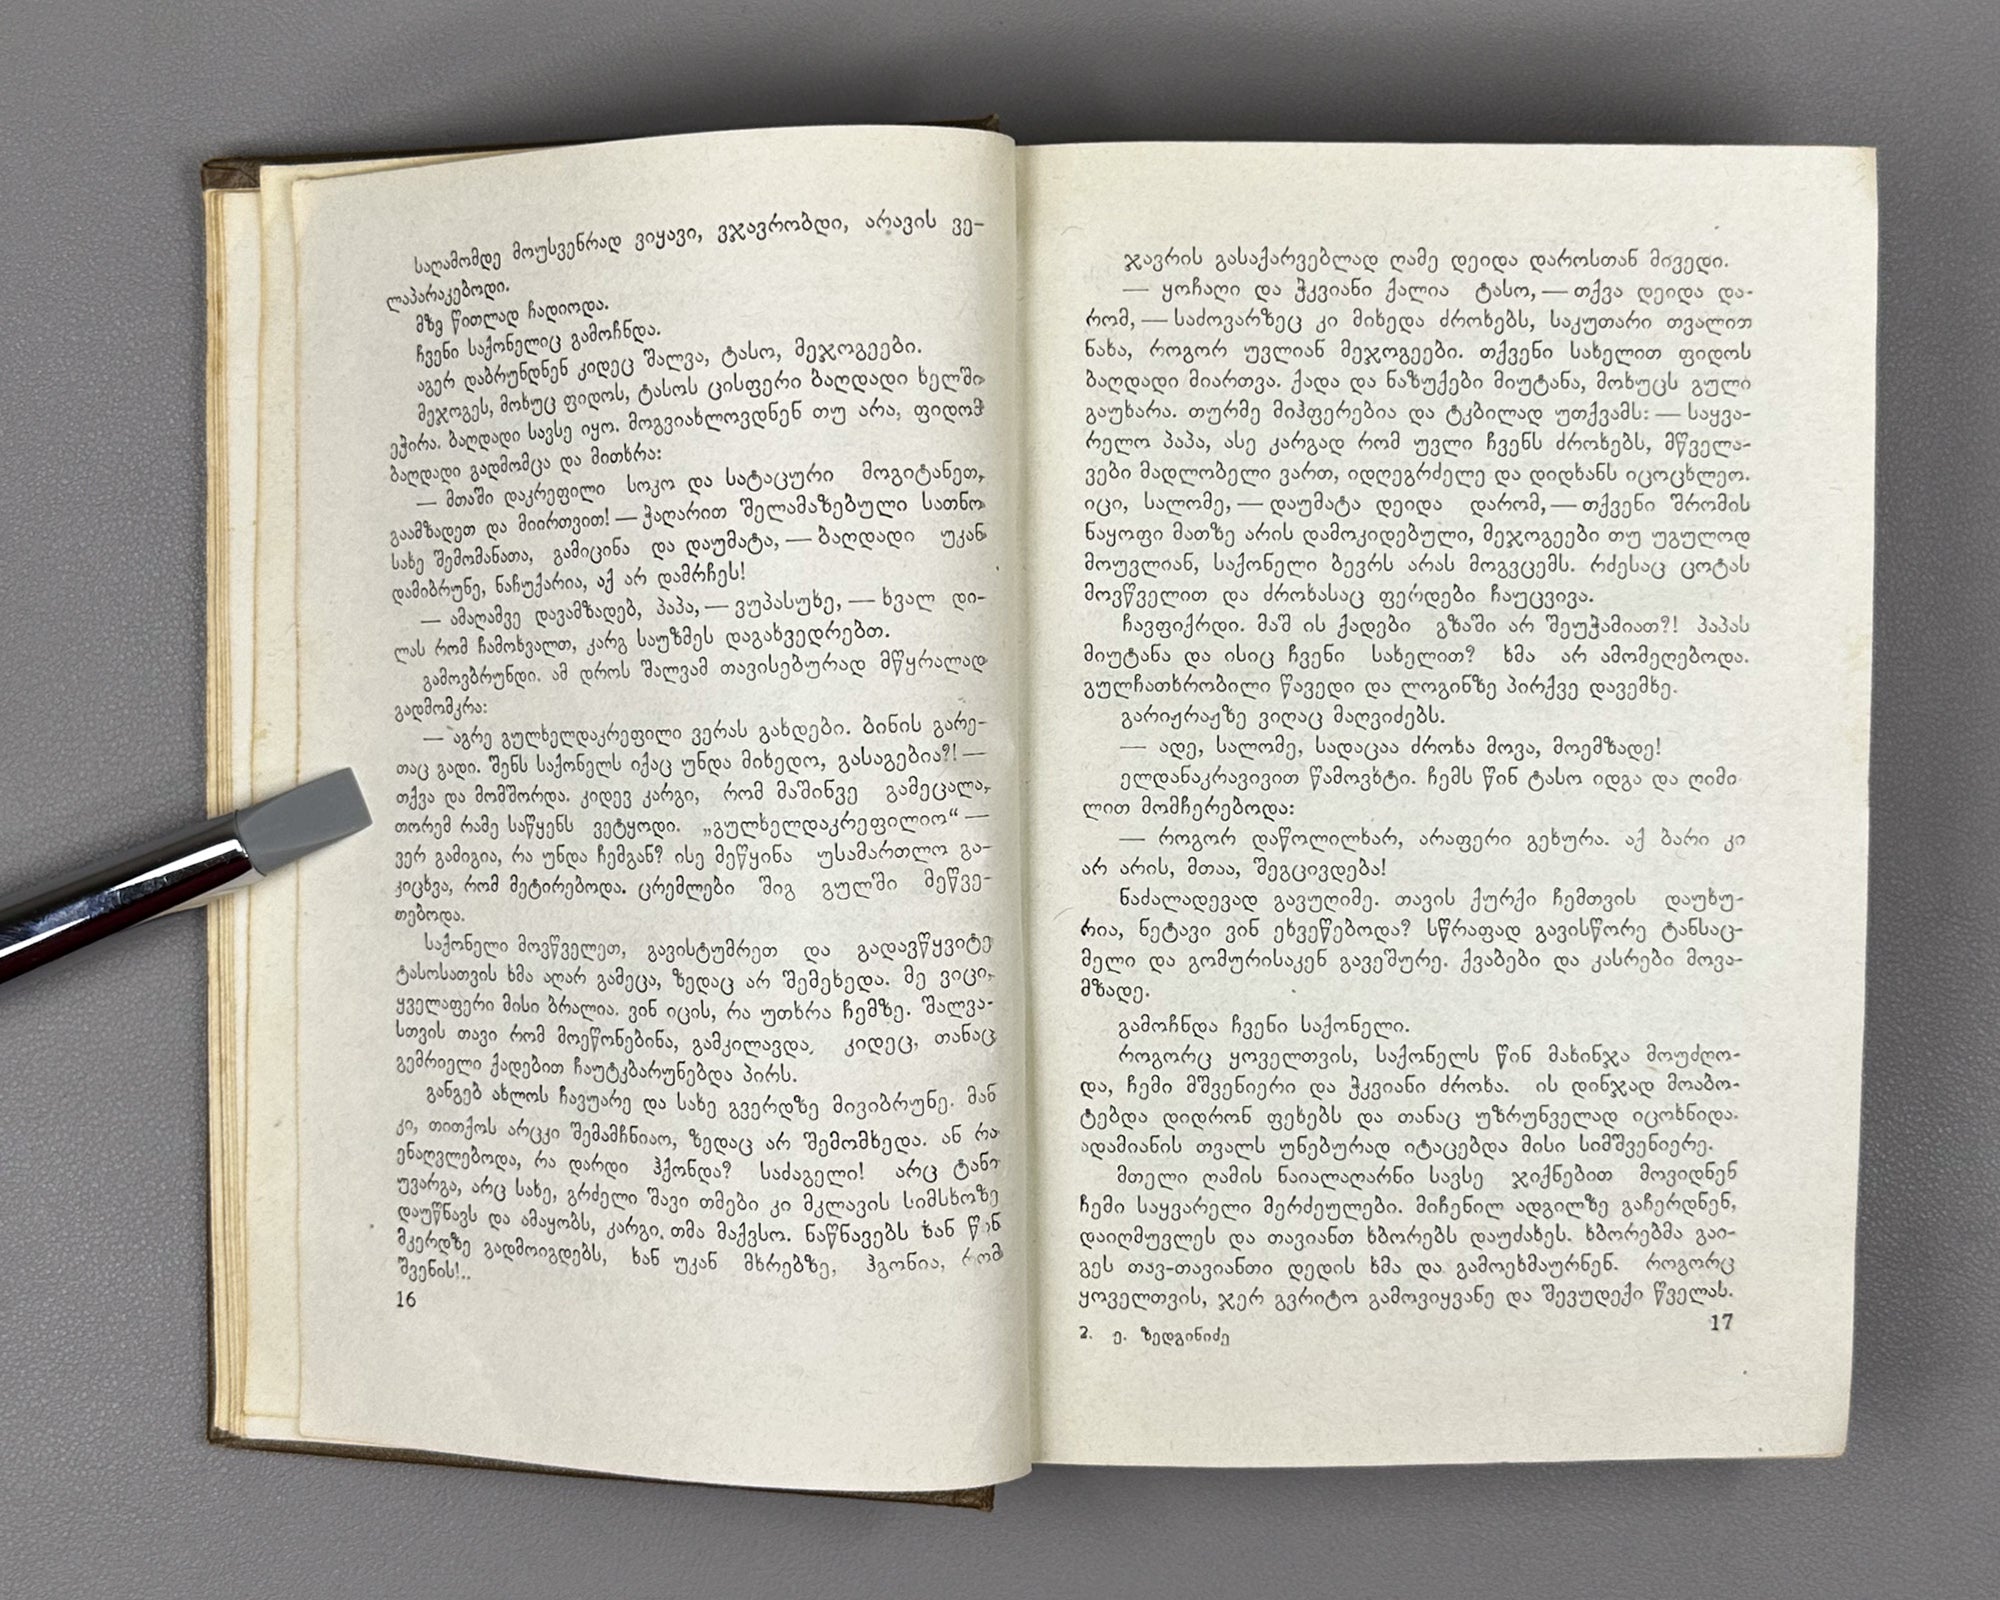 საღამომდე მოუსვენრად ვიყავი, ვჯავრობდი, არავის ვე-
ლაპარაკებოდი.
მზე წითლად ჩადიოდა.
ჩვენი საქონელიც გამოჩნდა.
აგერ დაბრუნდნენ კიდეც შალვა, ტასო, მეჯოგეები.
მეჯოგეს, მოხუც ფიდოს, ტასოს ცისფერი ბაღდადი ხელში
ეჭირა. ბაღდადი სავსე იყო. მოგვიახლოვდნენ თუ არა, ფიდომ
ბაღდადი გადმომცა და მითხრა:
— მთაში დაკრეფილი სოკო და სატაცური მოგიტანეთ,
გაამზადეთ და მიირთვით! — ჭაღარით შელამაზებული სათნო
სახე შემომანათა, გამიცინა და დაუმატა, — ბაღდადი უკან
დამიბრუნე, ნაჩუქარია, აქ არ დამრჩეს!
— ამაღამვე დავამზადებ, პაპა, — ვუპასუხე, — ხვალ დი-
ლას რომ ჩამოხვალთ, კარგ საუზმეს დაგახვედრებთ.
გამოვბრუნდი. ამ დროს შალვამ თავისებურად მწყრალად
გადმომკრა:
— აგრე გულხელდაკრეფილი ვერას გახდები. ბინის გარე-
თაც გადი. შენს საქონელს იქაც უნდა მიხედო, გასაგებია?! —
თქვა და მომშორდა. კიდევ კარგი, რომ მაშინვე გამეცალა,
თორემ რამე საწყენს ვეტყოდი. „გულხელდაკრეფილიო“ —
ვერ გამიგია, რა უნდა ჩემგან? ისე მეწყინა უსამართლო გა-
კიცხვა, რომ მეტირებოდა. ცრემლები შიგ გულში მეწვე-
თებოდა.
საქონელი მოვწველეთ, გავისტუმრეთ და გადავწყვიტე
ტასოსათვის ხმა აღარ გამეცა, ზედაც არ შემეხედა. მე ვიცი,
ყველაფერი მისი ბრალია. ვინ იცის, რა უთხრა ჩემზე. შალვა-
სთვის თავი რომ მოეწონებინა, გამკილავდა, კიდეც, თანაც
გემრიელი ქადებით ჩაუტკბარუნებდა პირს.
განგებ ახლოს ჩავუარე და სახე გვერდზე მივიბრუნე. მან
კი, თითქოს არცკი შემამჩნიაო, ზედაც არ შემომხედა. ან რა
ენაღვლებოდა, რა დარდი ჰქონდა? საძაგელი! არც ტანი
უვარგა, არც სახე, გრძელი შავი თმები კი მკლავის სიმსხოზე
დაუწნავს და ამაყობს, კარგი თმა მაქვსო. ნაწნავებს ხან წინ
მკერდზე გადმოიგდებს, ხან უკან მხრებზე, ჰგონია, რომ
შვენის!..
16
ჯავრის გასაქარვებლად ღამე დეიდა დაროსთან მივედი.
— ყოჩაღი და ჭკვიანი ქალია ტასო, — თქვა დეიდა და-
რომ, — საძოვარზეც კი მიხედა ძროხებს, საკუთარი თვალით
ნახა, როგორ უვლიან მეჯოგეები. თქვენი სახელით ფიდოს
ბაღდადი მიართვა. ქადა და ნაზუქები მიუტანა, მოხუცს გული
გაუხარა. თურმე მიჰფერებია და ტკბილად უთქვამს: — საყვა-
რელო პაპა, ასე კარგად რომ უვლი ჩვენს ძროხებს, მწველა-
ვები მადლობელი ვართ, იდღეგრძელე და დიდხანს იცოცხლეო.
იცი, სალომე, — დაუმატა დეიდა დარომ, — თქვენი შრომის
ნაყოფი მათზე არის დამოკიდებული, მეჯოგეები თუ უგულოდ
მოუვლიან, საქონელი ბევრს არას მოგვცემს. რძესაც ცოტას
მოვწველით და ძროხასაც ფერდები ჩაუცვივა.
ჩავფიქრდი. მაშ ის ქადები გზაში არ შეუჭამიათ?! პაპას
მიუტანა და ისიც ჩვენი სახელით? ხმა არ ამომეღებოდა.
გულჩათხრობილი წავედი და ლოგინზე პირქვე დავემხე.
გარიჟრაჟზე ვიღაც მაღვიძებს.
— ადე, სალომე, სადაცაა ძროხა მოვა, მოემზადე!
ელდანაკრავივით წამოვხტი. ჩემს წინ ტასო იდგა და ღიმი
ლით მომჩერებოდა:
— როგორ დაწოლილხარ, არაფერი გეხურა. აქ ბარი კი
არ არის, მთაა, შეგცივდება!
ნაძალადევად გავუღიმე. თავის ქურქი ჩემთვის დაუხუ-
რია, ნეტავი ვინ ეხვეწებოდა? სწრაფად გავისწორე ტანსაც-
მელი და გომურისაკენ გავეშურე. ქვაბები და კასრები მოვა-
მზადე.
გამოჩნდა ჩვენი საქონელი.
როგორც ყოველთვის, საქონელს წინ მახინჯა მოუძღო-
და, ჩემი მშვენიერი და ჭკვიანი ძროხა. ის დინჯად მოაბო-
ტებდა დიდრონ ფეხებს და თანაც უზრუნველად იცოხნიდა.
ადამიანის თვალს უნებურად იტაცებდა მისი სიმშვენიერე.
მთელი ღამის ნაიალაღარნი სავსე ჯიქნებით მოვიდნენ
ჩემი საყვარელი მერძეულები. მიჩენილ ადგილზე გაჩერდნენ,
დაიღმუვლეს და თავიანთ ხბორებს დაუძახეს. ხბორებმა გაი-
გეს თავ-თავიანთი დედის ხმა და გამოეხმაურნენ. როგორც
ყოველთვის, ჯერ გვრიტო გამოვიყვანე და შევუდექი წველას.
2. ე. ზედგინიძე
17